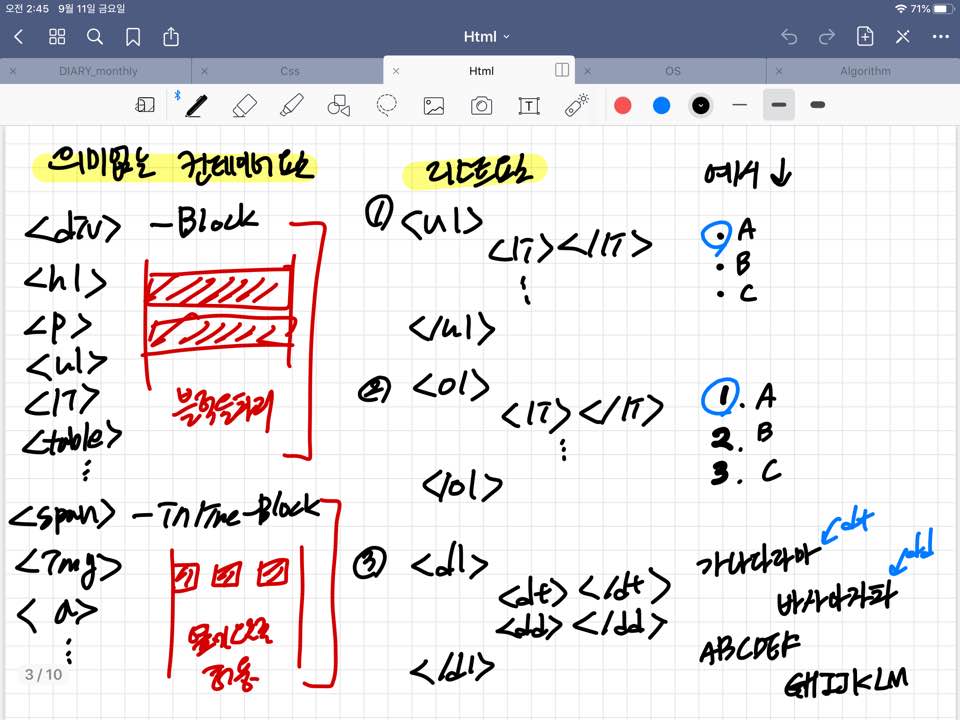 오전 2:45 9월 11일 금요일
71%
Html
DIARY_monthly
Css
Html
OS
Algorithm
의미없는 컨테이너 요소
<div> - Block
<h1>
<p>
<ul>
<li>
<table>
블럭을 차지
<span> - Inline-Block
<img>
<a>
적용
3 / 10
리스트 요소
① <ul>
<li></li>
</ul>
② <ol>
<li></li>
</ol>
③ <dl>
<dt></dt>
<dd></dd>
</dl>
예시 ↓
• A
• B
• C
1. A
2. B
3. C
dt
가나다라마
dd
바사아자파
ABCDEF
GHIJKLM